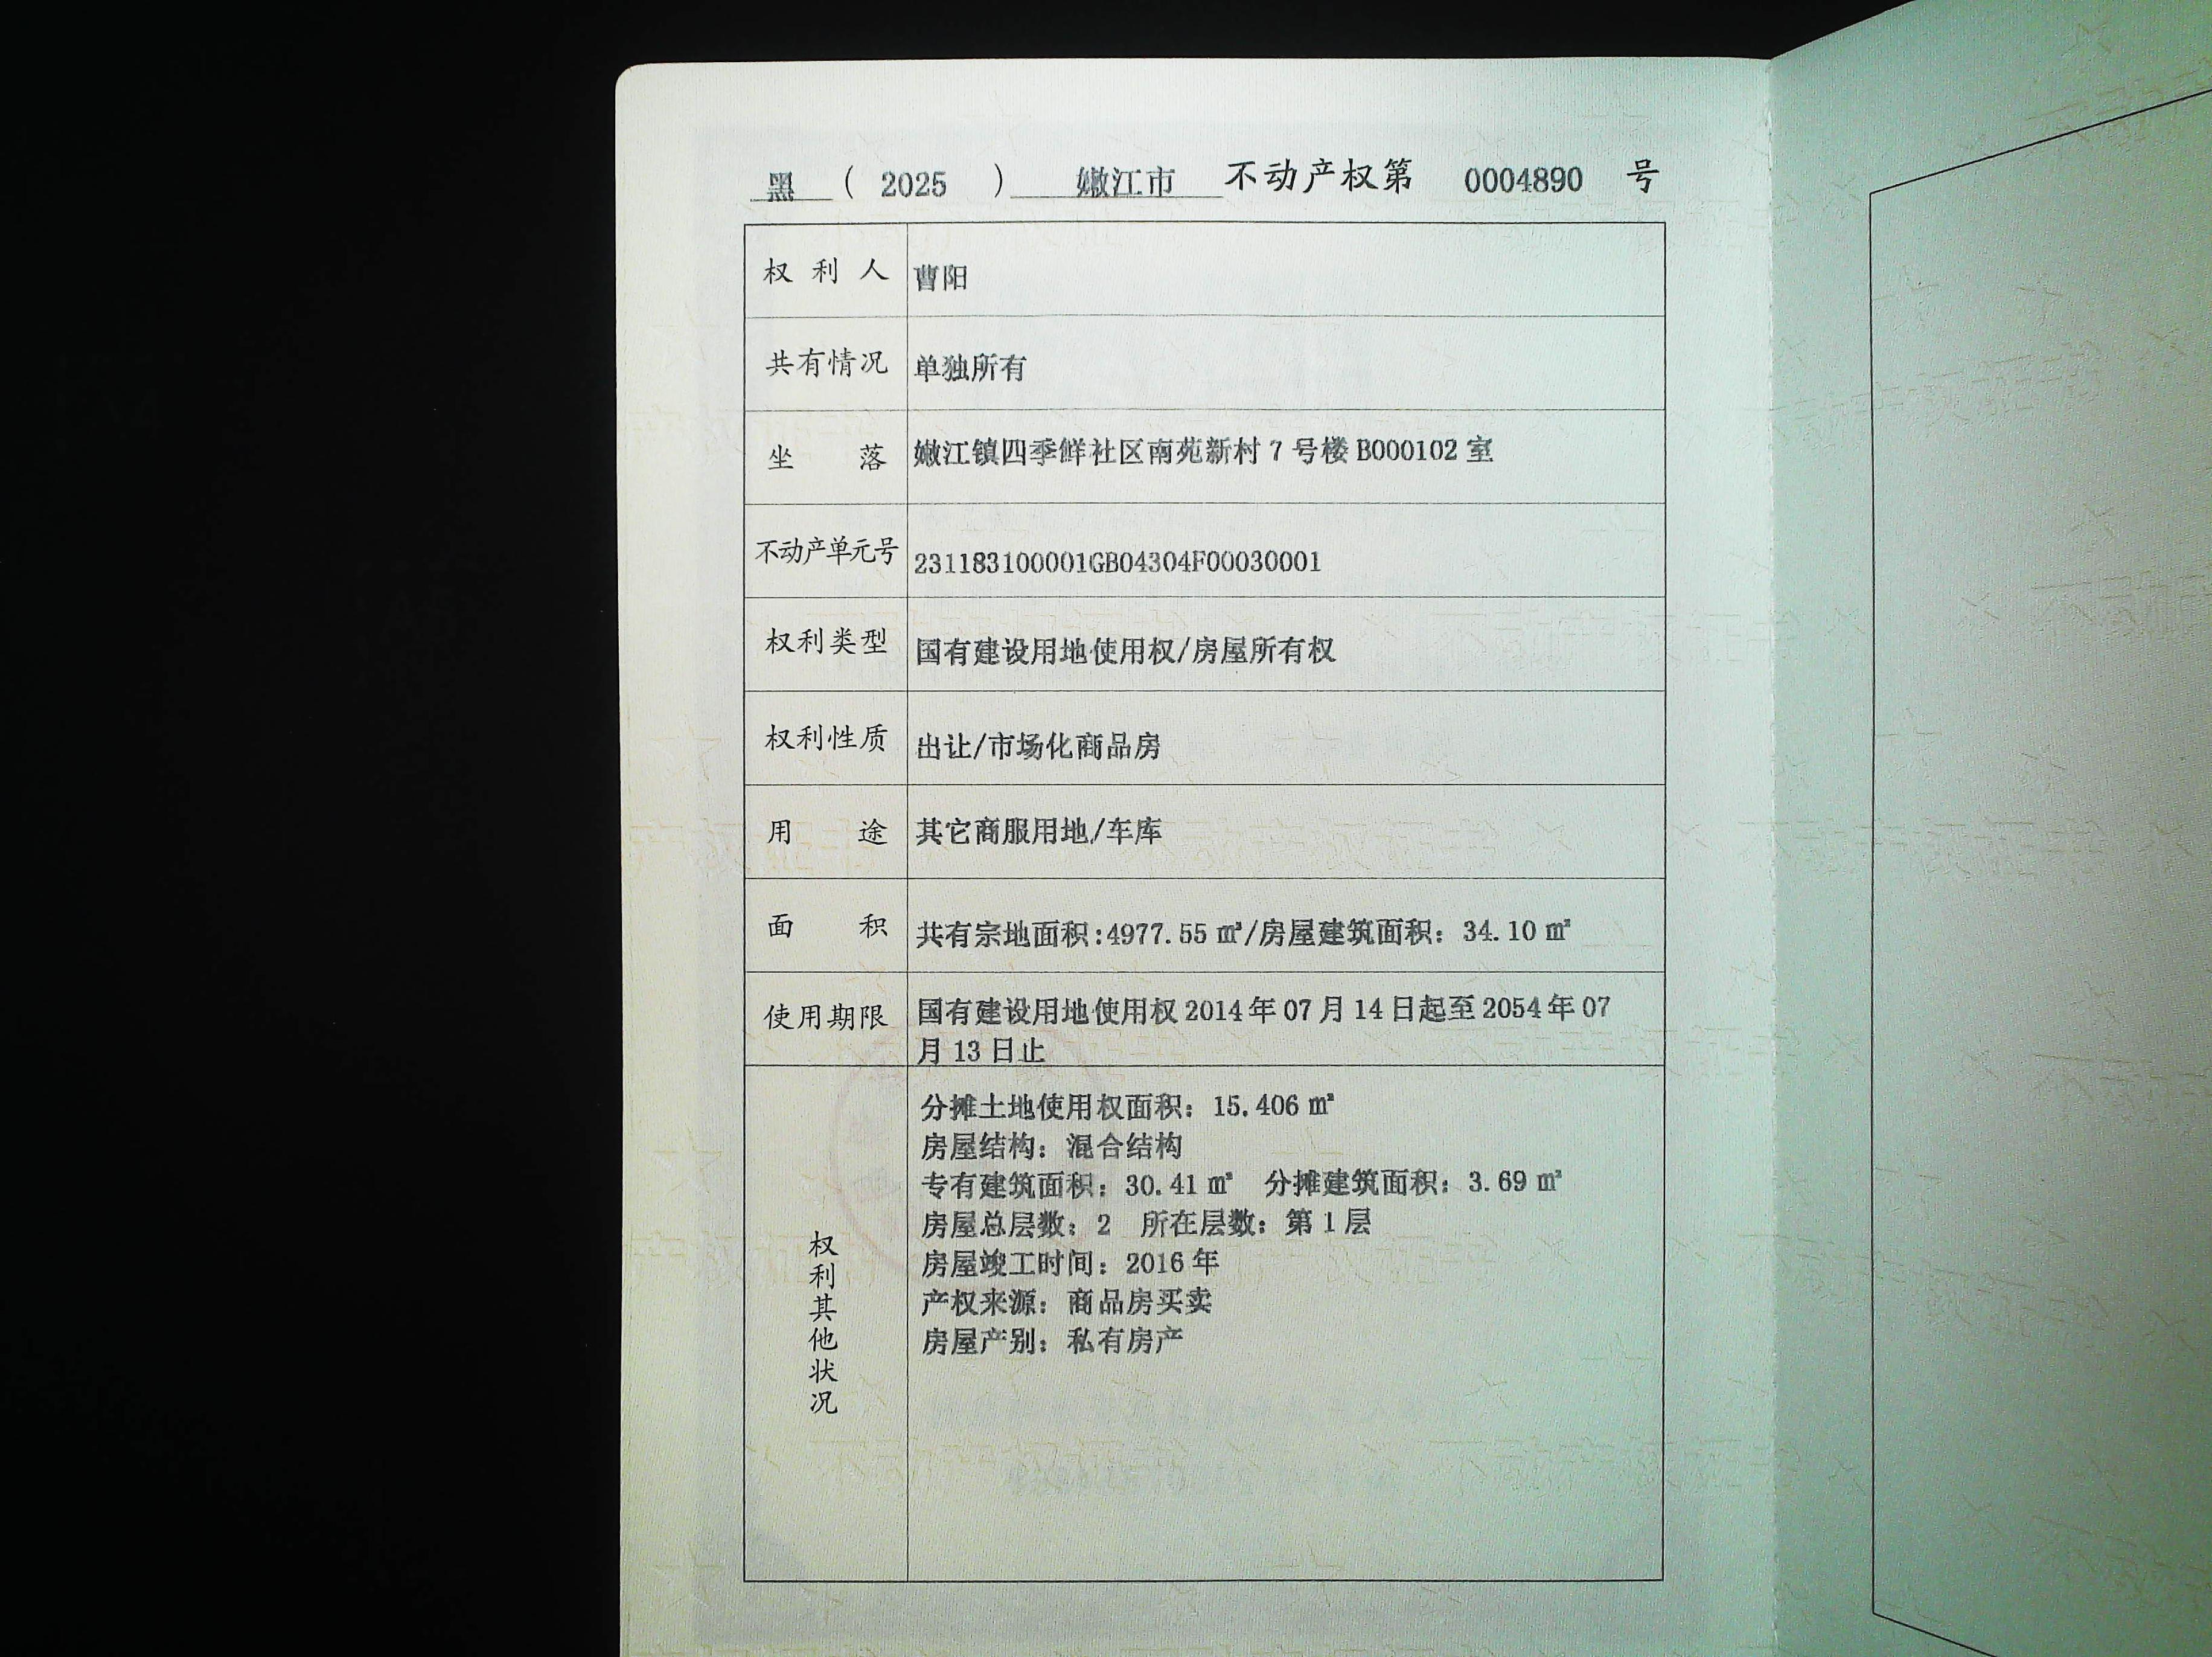 黑 ( 2025 ) 嫩江市 不动产权第 0004890 号
权利人 曹阳
共有情况 单独所有
坐落 嫩江镇四季鲜社区南苑新村 7 号楼 B000102 室
不动产单元号 231183100001GB04304F00030001
权利类型 国有建设用地使用权/房屋所有权
权利性质 出让/市场化商品房
用途 其它商服用地/车库
面积 共有宗地面积:4977.55 ㎡/房屋建筑面积: 34.10 ㎡
使用期限 国有建设用地使用权 2014 年 07 月 14 日起至 2054 年 07
月 13 日止
权利其他状况
分摊土地使用权面积: 15.406 ㎡
房屋结构: 混合结构
专有建筑面积: 30.41 ㎡ 分摊建筑面积: 3.69 ㎡
房屋总层数: 2 所在层数: 第 1 层
房屋竣工时间: 2016 年
产权来源: 商品房买卖
房屋产别: 私有房产